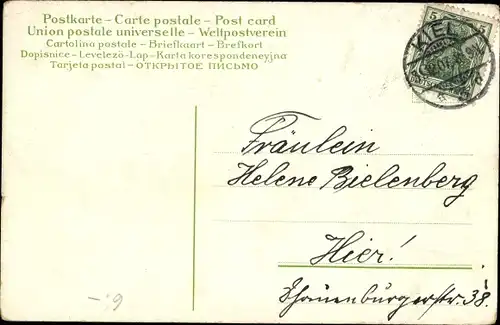 Postkarte – Carte postale – Post card
Union postale universelle – Weltpostverein
Cartolina postale – Briefkaart – Brefkort
Dopisnice – Levelezö-Lap – Karta korespondencyjna
Tarjeta postal – ОТКРЫТОЕ ПИСЬМО
5 5
KIEL
Fräulein
Helene Bielenberg
Hier!
Schauenburgerstr. 38.
6.-